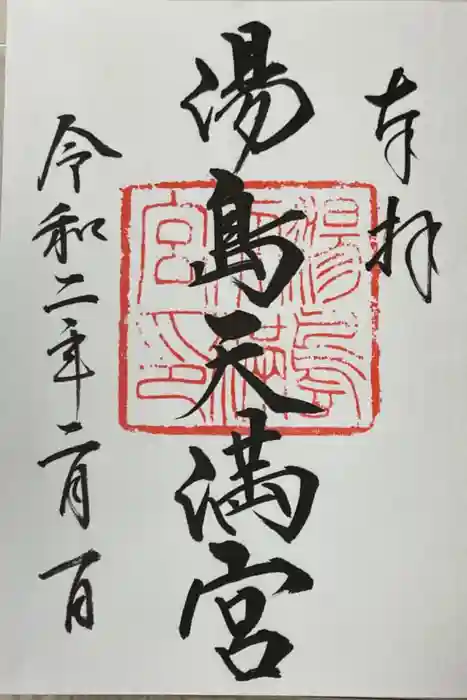 奉拝
湯島天満宮
令和二年二月一日
湯島天満宮印